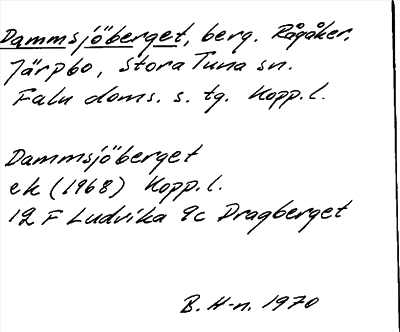 Dammsjöberget, berg. Rågåker.
Järpbo, Stora Tuna sn.
Falu doms. s. tg. Kopp. l.
Dammsjöberget
ek (1968) Kopp. l.
12 F Ludvika 9c Dragberget
B. H-n. 1970